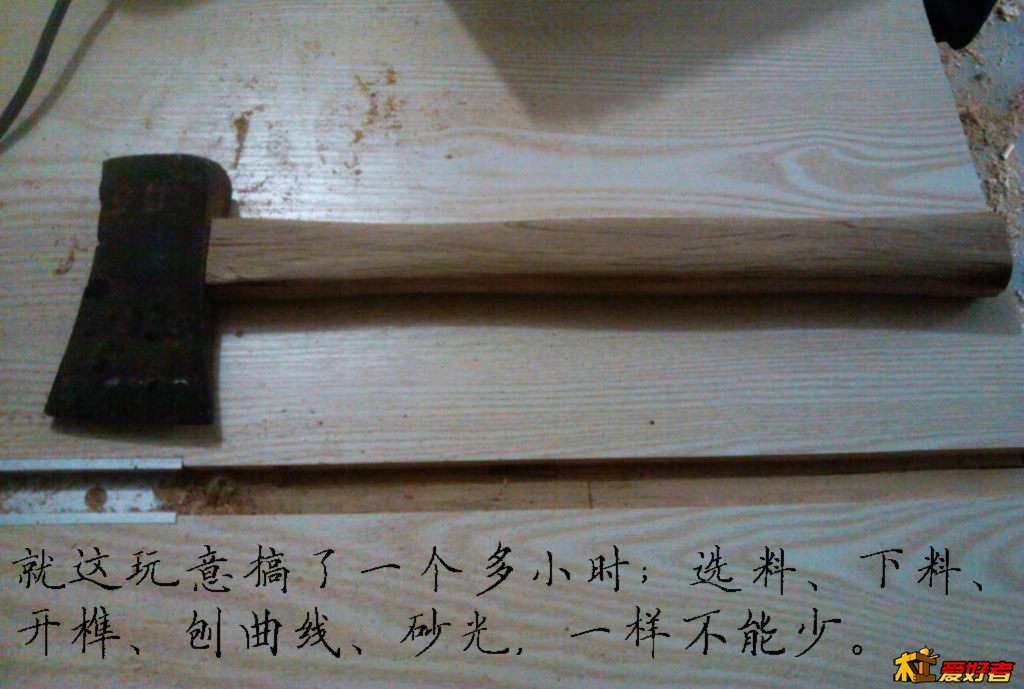 就这玩意搞了一个多小时；选料、下料、
开榫、刨曲线、砂光，一样不能少。
木工爱好者